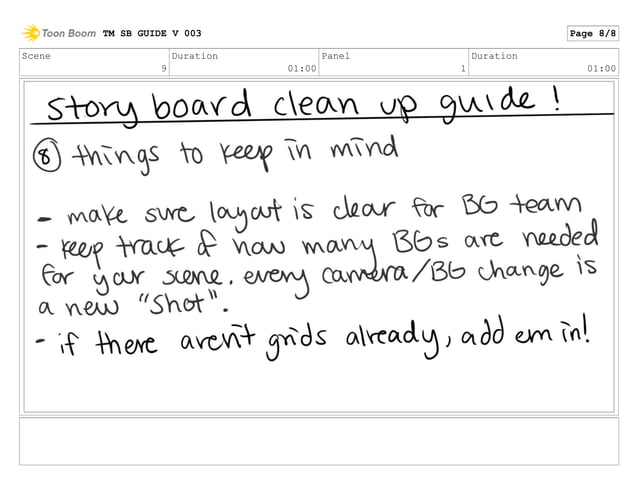 Toon Boom TM SB GUIDE V 003 Page 8/8
Scene Duration Panel Duration
9 01:00 1 01:00
story board clean up guide !
8 things to keep in mind
- make sure layout is clear for BG team
- keep track of how many BGs are needed
for your scene. every camera/BG change is
a new "shot".
- if there aren't grids already, add em in!